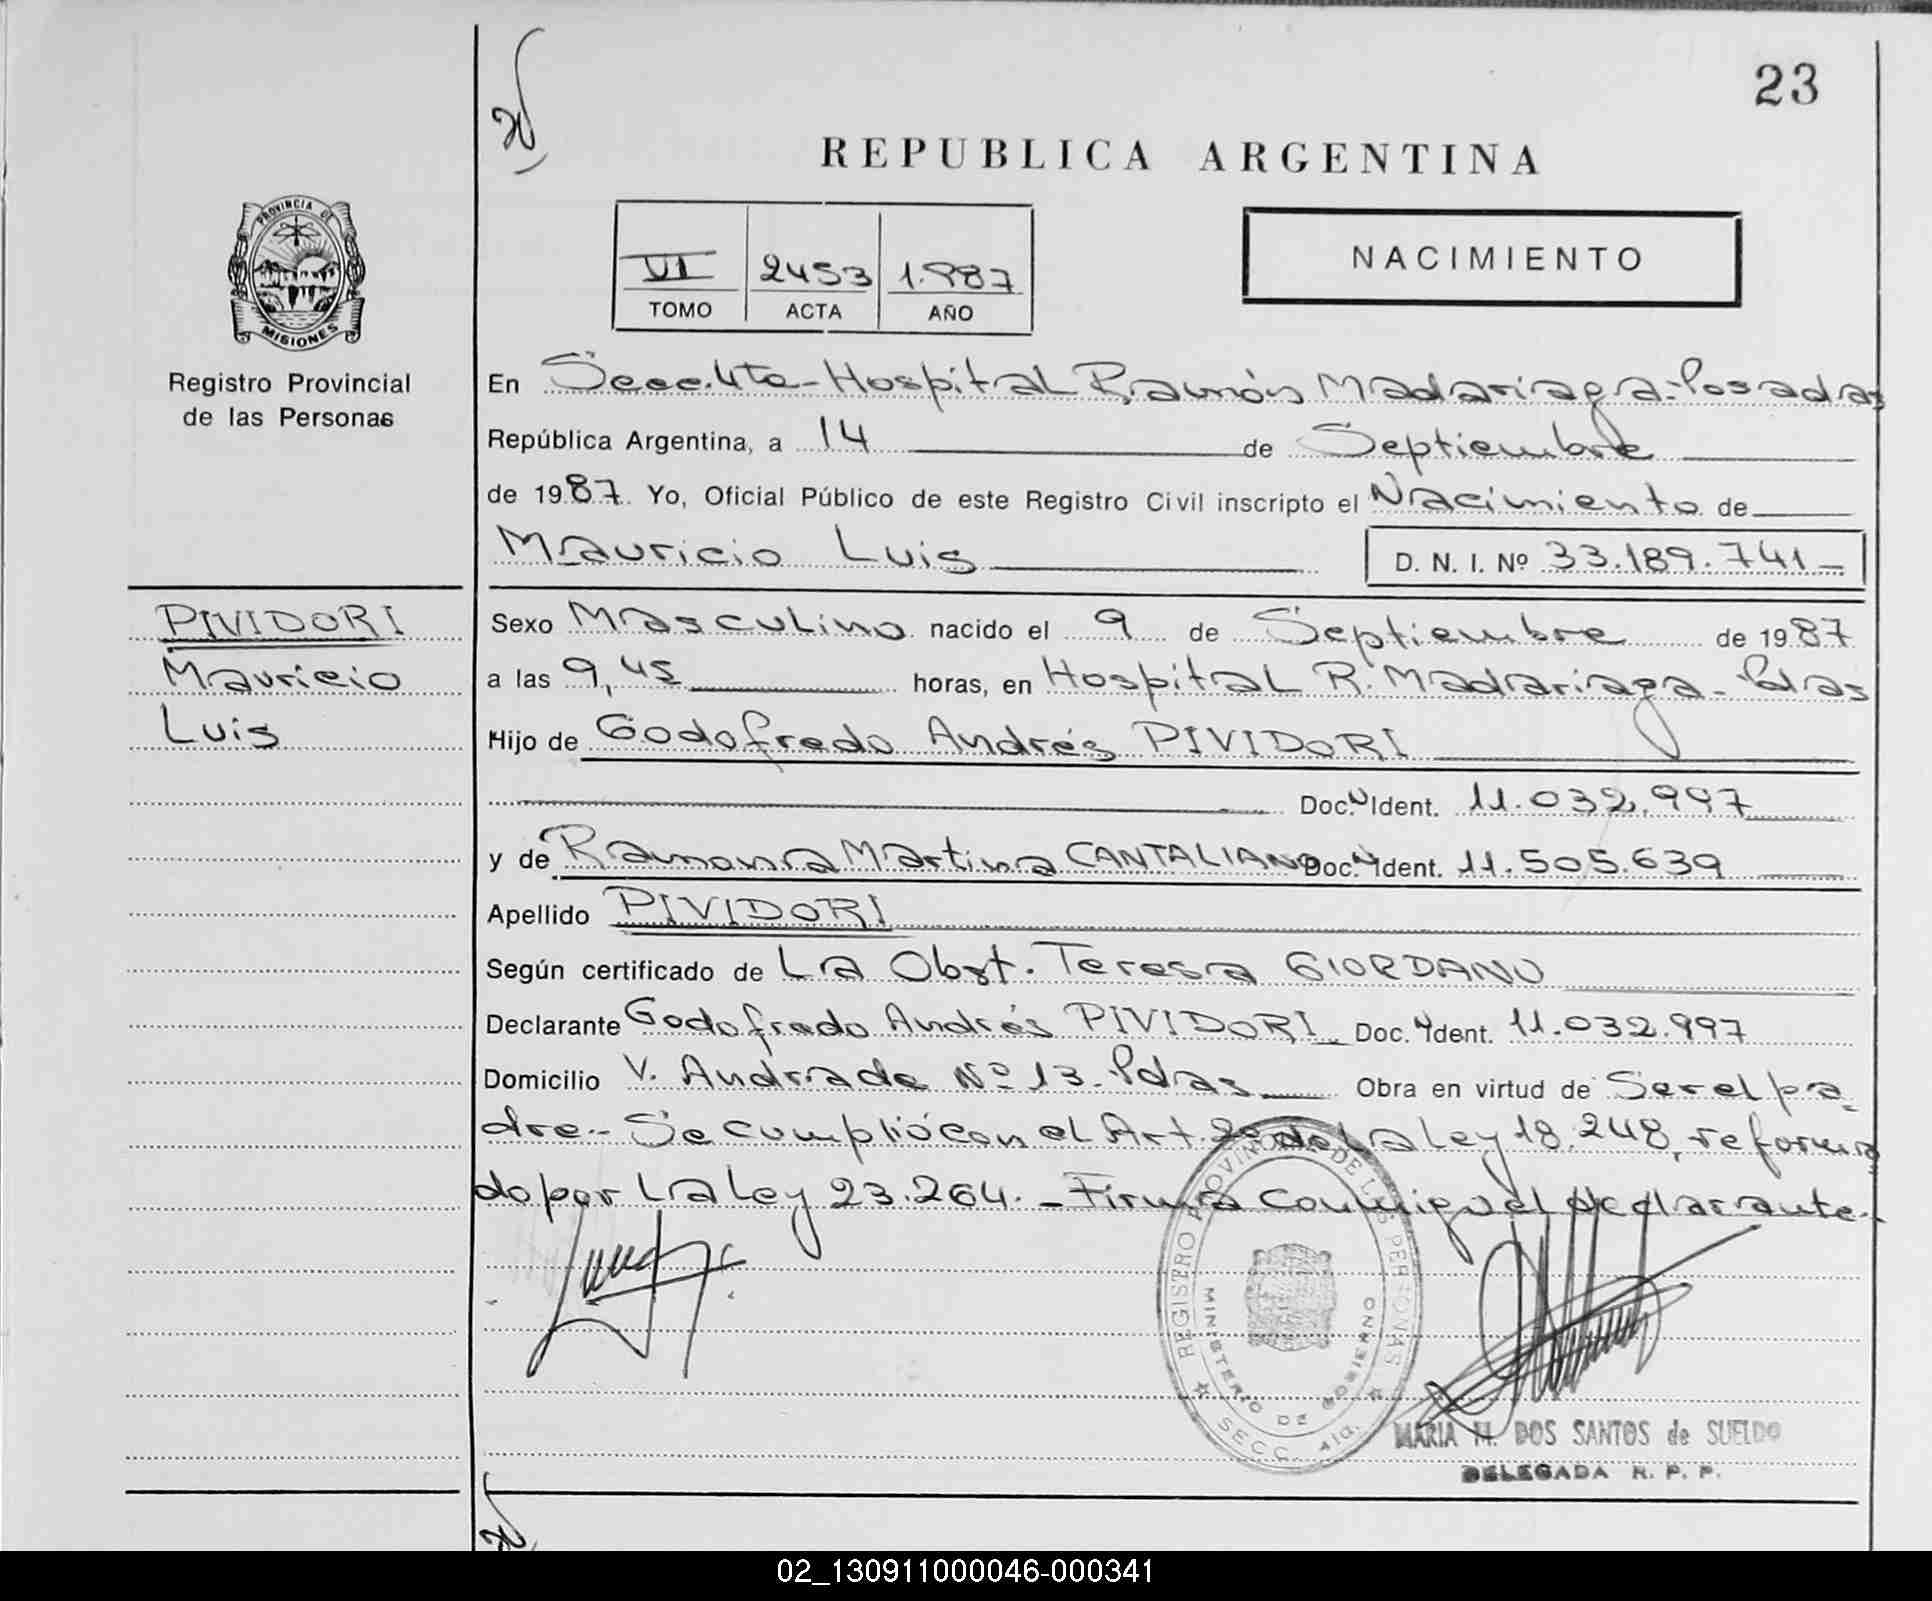 23
REPUBLICA ARGENTINA
PROVINCIA DE
MISIONES
Registro Provincial
de las Personas
VI 2453 1.987
TOMO ACTA AÑO
NACIMIENTO
En Secc. 4ta - Hospital Ramón Madariaga - Posadas
República Argentina, a 14 de Septiembre
de 1987. Yo, Oficial Público de este Registro Civil inscripto el Nacimiento de
Mauricio Luis D. N. I. Nº 33.189.741 -
PIVIDORI
Mauricio
Luis
Sexo Masculino nacido el 9 de Septiembre de 1987
a las 9,45 horas, en Hospital R. Madariaga - Pdas
Hijo de Godofredo Andrés PIVIDORI
Doc. Ident. 11.032.997
y de Ramona Martina CANTALIANO Doc. Ident. 11.505.639
Apellido PIVIDORI
Según certificado de La Obst. Teresa GIORDANO
Declarante Godofredo Andrés PIVIDORI Doc. Ident. 11.032.997
Domicilio V. Andrade Nº 13 - Pdas Obra en virtud de Ser el pa-
dre.- Se cumplió con el Art. 2º de La Ley 18.248, reforma
do por La Ley 23.264. - Firma conmigo el declarante.-
REGISTRO PROVINCIAL DE LAS PERSONAS
MINISTERIO DE GOBIERNO
SECC. 4ta.
MARIA M. DOS SANTOS de SUELDO
DELEGADA R. P. P.
02_130911000046-000341